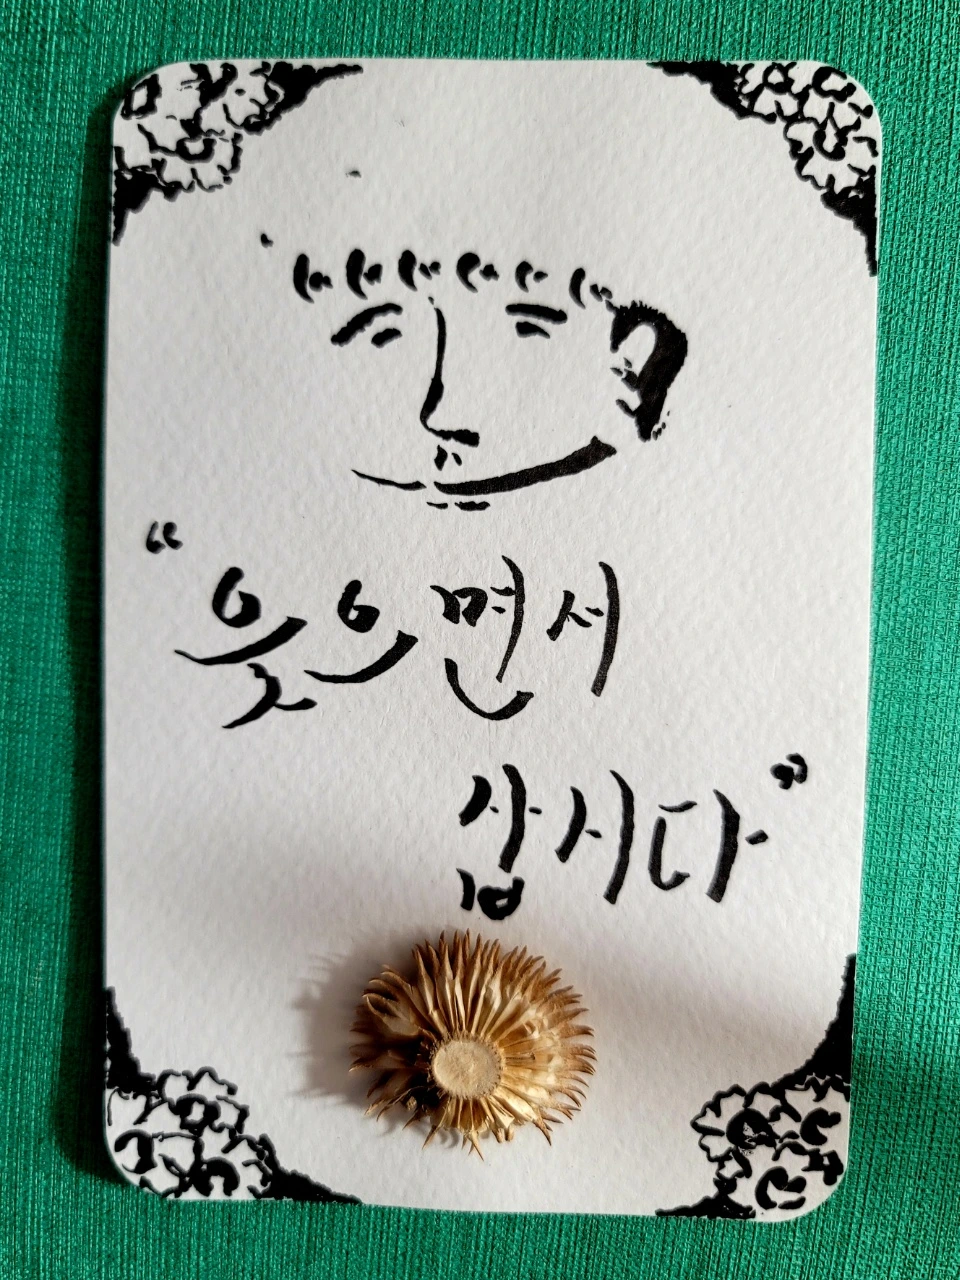 “웃으면서
삽시다”